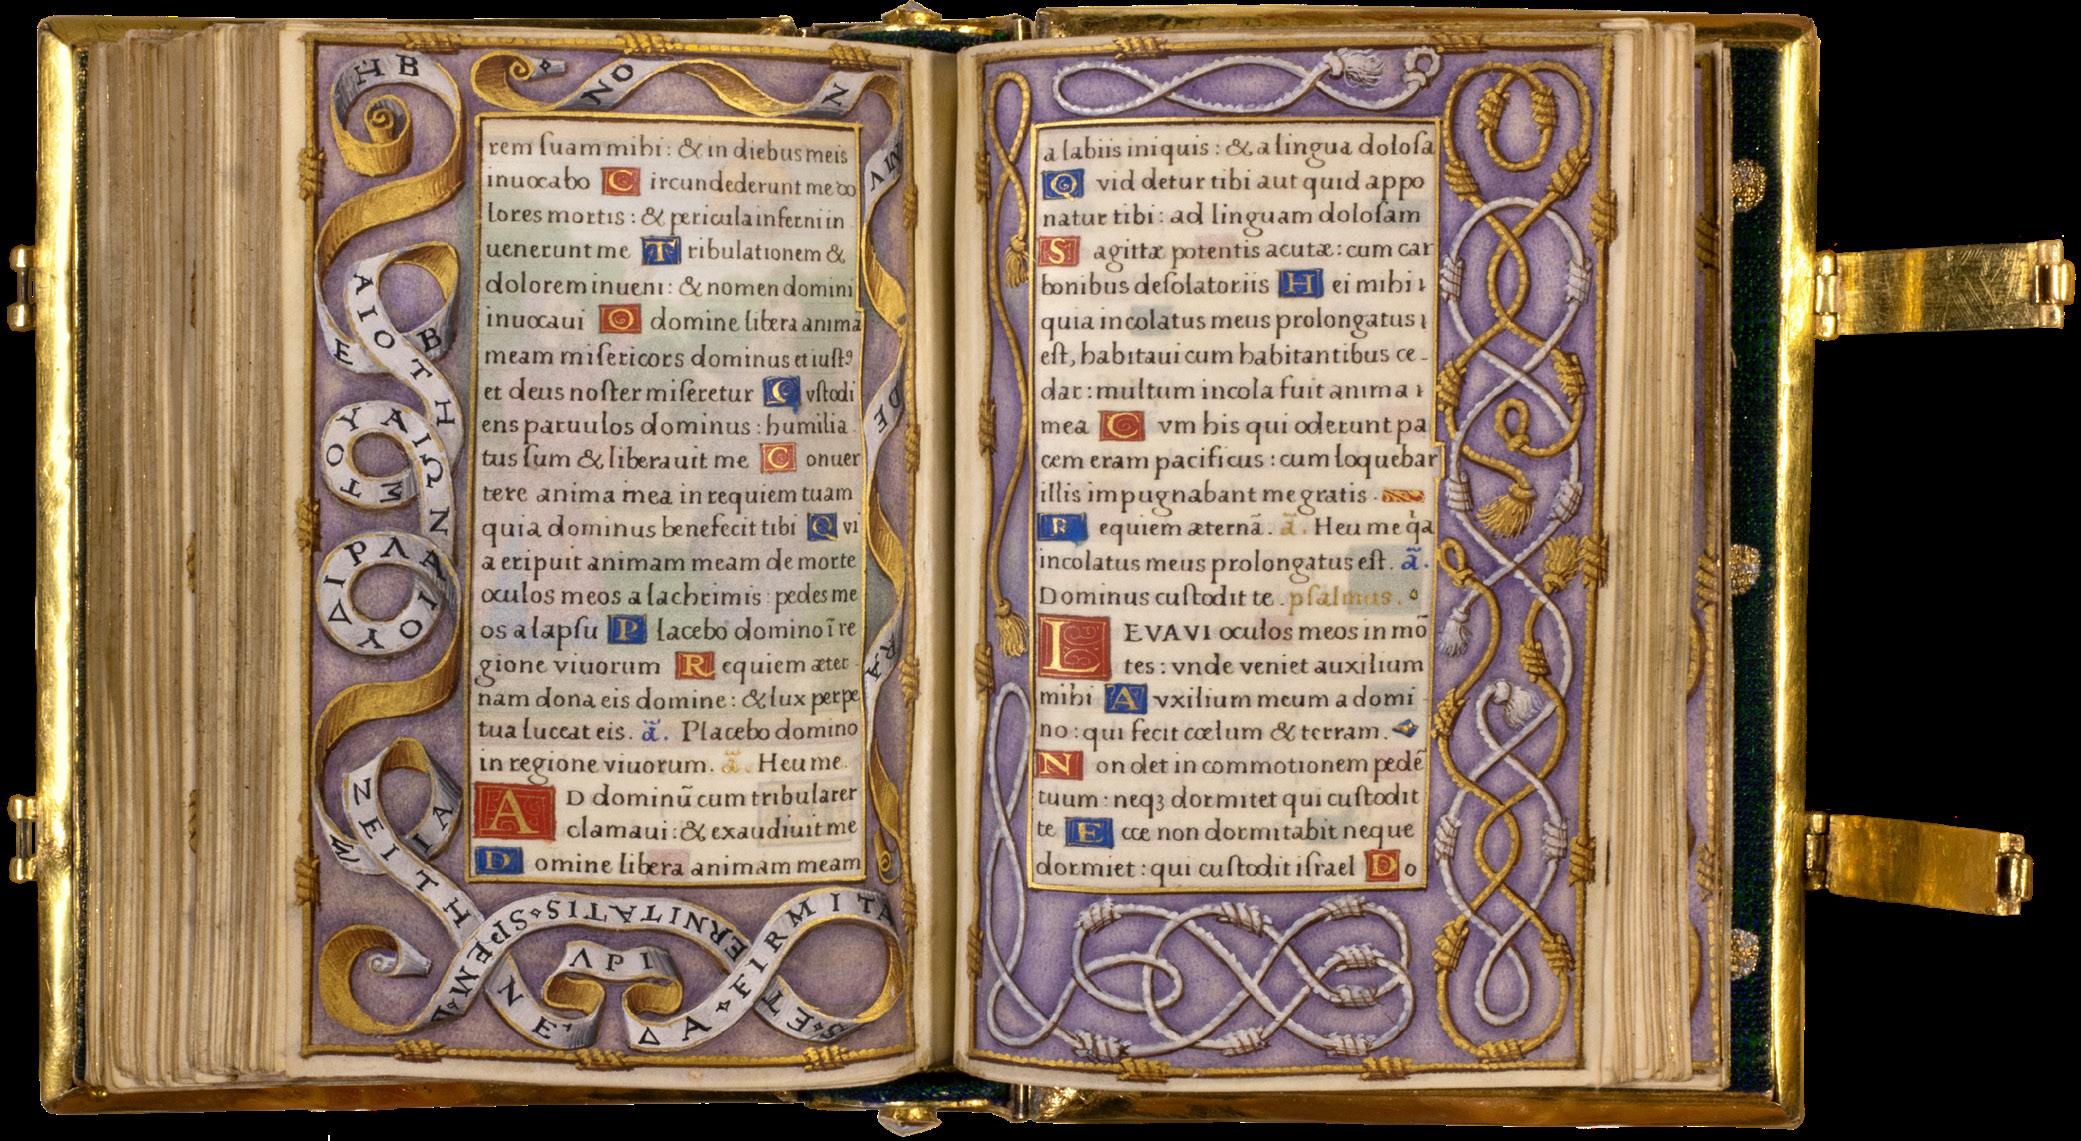 rem ſuam mihi : & in diebus meis
inuocabo C ircundederunt me do
lores mortis : & pericula inferni in
uenerunt me T ribulationem &
dolorem inueni : & nomen domini
inuocaui O domine libera anima
meam miſericors dominus et iuſtꝰ
et deus noſter miſeretur C vſtodi
ens paruulos dominus : humilia
tus ſum & liberauit me C onuer
tere anima mea in requiem tuam
quia dominus benefecit tibi Q vi
a eripuit animam meam de morte
oculos meos a lachrimis : pedes me
os a lapſu P lacebo domino ĩ re
gione viuorum R equiem æter
nam dona eis domine : & lux perpe
tua luceat eis . ã . Placebo domino
in regione viuorum . ã . Heu me .
A D dominũ cum tribularer
clamaui : & exaudiuit me
D omine libera animam meam
a labiis iniquis : & a lingua doloſa
Q vid detur tibi aut quid appo
natur tibi : ad linguam doloſam
S agittæ potentis acutæ : cum car
bonibus deſolatoriis H ei mihi
quia incolatus meus prolongatus
eſt, habitaui cum habitantibus ce-
dar : multum incola fuit anima
mea C vm his qui oderunt pa
cem eram pacificus : cum loquebar
illis impugnabant me gratis .
R equiem æternã . ã . Heu me q̃a
incolatus meus prolongatus eſt . ã .
Dominus cuſtodit te . pſalmus .
L EVAVI oculos meos in mõ
tes : vnde veniet auxilium
mihi A vxilium meum a domi
no : qui fecit cœlum & terram .
N on det in commotionem pedẽ
tuum : neqꝫ dormitet qui cuſtodit
te E cce non dormitabit neque
dormiet : qui cuſtodit iſrael D o
HB
NO
N
DE
AIOTH
B
E
ΑΙΩΝ
ΤΟΥ
ΔΙΡΛΑΙΟΥ
ZEITH
NE
ΛΡΙ
ΔΑ
FIRMITA
S ET
ERNITATIS
SPEM